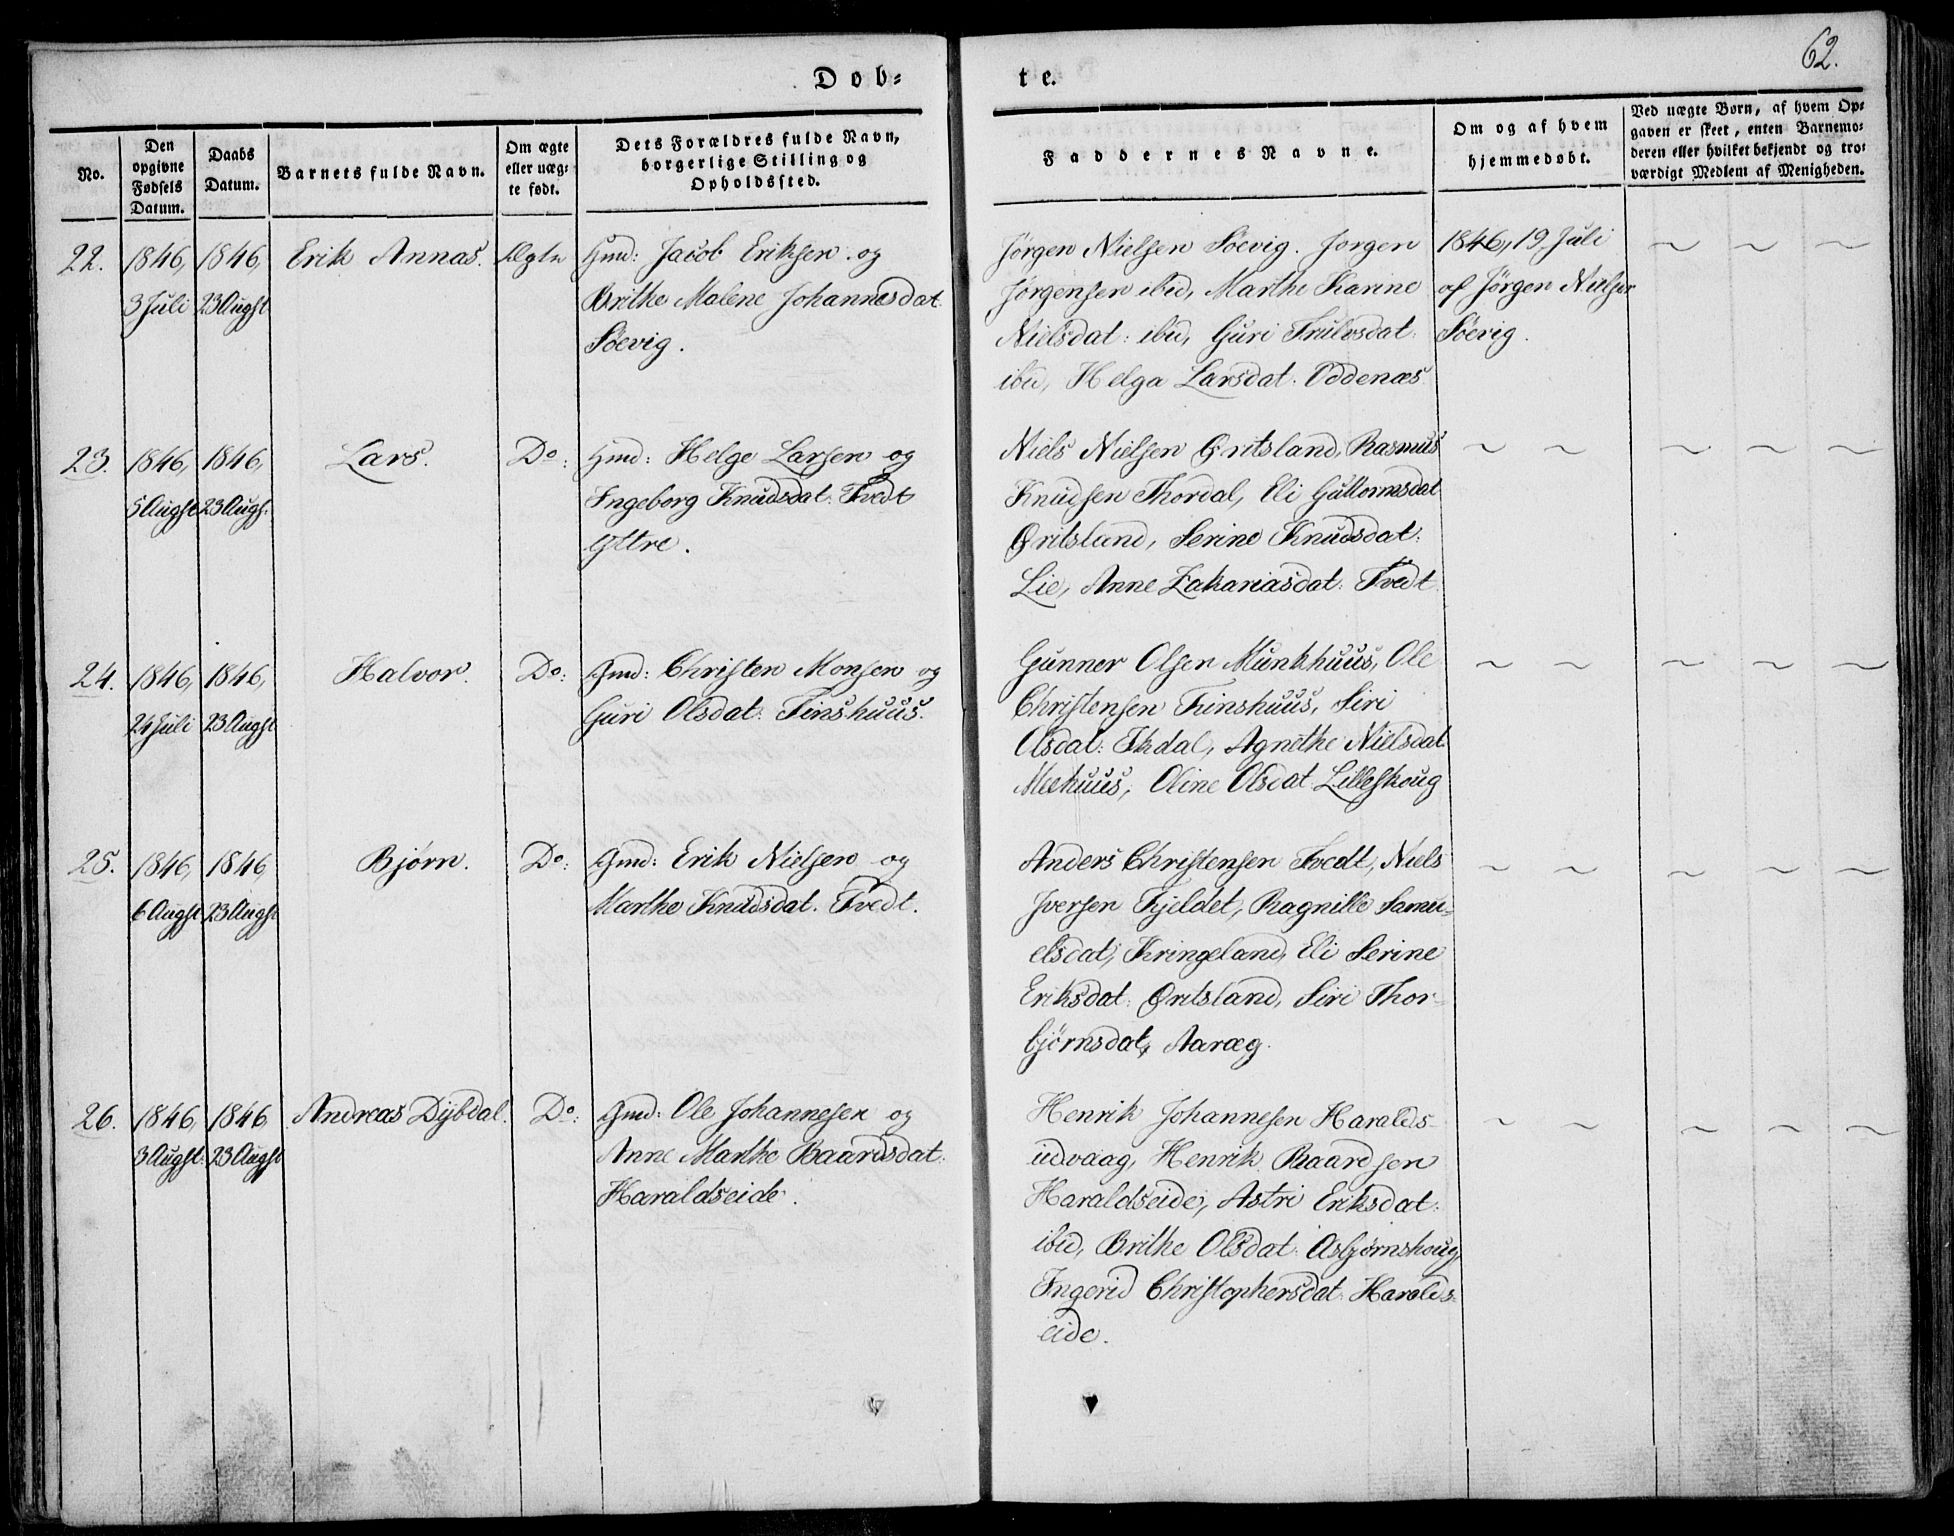 62.
Døb-
te.
No.
Den
opgivne
Fødsels
Datum.
Daabs
Datum.
Barnets fulde Navn.
Om ægte
eller uæg-
te født.
Dets Forældres fulde Navn,
borgerlige Stilling og
Opholdssted.
Faddernes Navne.
Om og af hvem
hjemmedøbt.
Ved uægte Børn, af hvem Op-
gaven er skeet, enten Barnemo-
deren eller hvilket bekjendt og tro-
værdigt Medlem af Menigheden.
22.
1846,
3 Juli
1846,
23 Augst
Erik Annas.
Ægte
Gmd: Jacob Eriksen og
Brithe Malene Johannesdat.
Søevig.
Jørgen Nielsen Søevig. Jørgen
Jørgensen ibid, Marthe Karine
Nielsdat: ibid, Guri Trulvsdat.
ibid, Helga Larsdat. Oddenæs
1846, 19 Juli
af Jørgen Nielsen
Søevig.
23.
1846,
5 Augst
1846,
23 Augst.
Lars.
Do:
Gmd: Helge Larsen og
Ingeborg Knudsdat: Tvedt
Yttre.
Niels Nielsen Øritsland, Rasmus
Knudsen Thordal, Eli Guttormsdat
Øritsland, Serine Knudsdat:
Lie, Anne Zakariasdat: Tvedt
24.
1846,
24 Juli
1846,
23 Augst
Halvor.
Do:
Gmd: Christen Monsen og
Guri Olsdat: Finshuus.
Gunner Olsen Munkhuus, Ole
Christensen Finshuus, Siri
Olsdat: Ekdal, Agnethe Nielsdat.
Meehuus, Oline Olsdat Lilleskoug
25.
1846,
6 Augst
1846,
23 Augst
Bjørn.
Do:
Gmd: Erik Nielsen og
Marthe Knudsdat. Tvedt.
Anders Christensen Tvedt, Niels
Iversen Fjeldet, Ragnille Samu-
elsdat, Kringeland, Eli Serine
Eriksdat: Øritsland, Siri Thor-
bjørnsdat, Aaræg.
26.
1846,
3 Augst
1846
23 Augst
Andreas Dybdal.
Do:
Gmd: Ole Johannesen og
Anne Marthe Baardsdat:
Haraldseide.
Henrik Johannesen Haralds-
eidvaag, Henrik Baardsen
Haraldseide, Astri Eriksdat:
ibid, Brithe Olsdat: Asbjørnshoug,
Ingerid Christophersdat: Haralds-
eide.